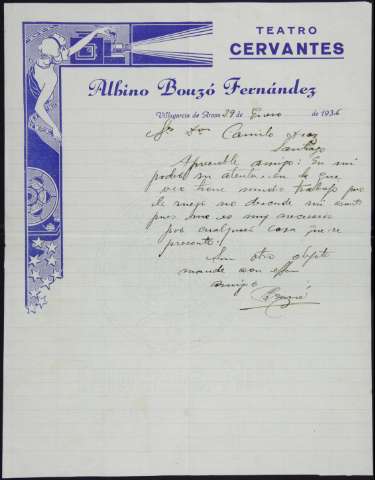 TEATRO
CERVANTES
Albino Bouzó Fernández
Villagarcia de Arosa 29 de Enero de 1936
Sr Don Camilo Diaz
Santiago
Apreciable amigo: En mi
poder su atenta en la que
veo tiene mucho trabajo por
le ruego no descuide mi asunto
pues me es muy necesario
por cualquier cosa que se
presente.
Sin otro objeto
mande a su affmo
amigo
Bouzó